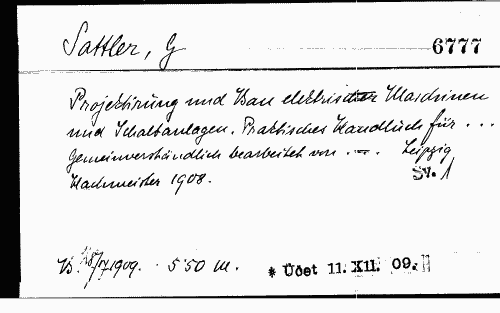 Sattler, G
6777
Projektirung und Bau elektrischer Maschinen
und Schaltanlagen. Praktisches Handbuch für ...
Gemeinverständlich bearbeitet von .–. Leipzig
Hachmeister 1908. Sv. 1
1909. 5·50 M. * Účet 11. XII. 09.